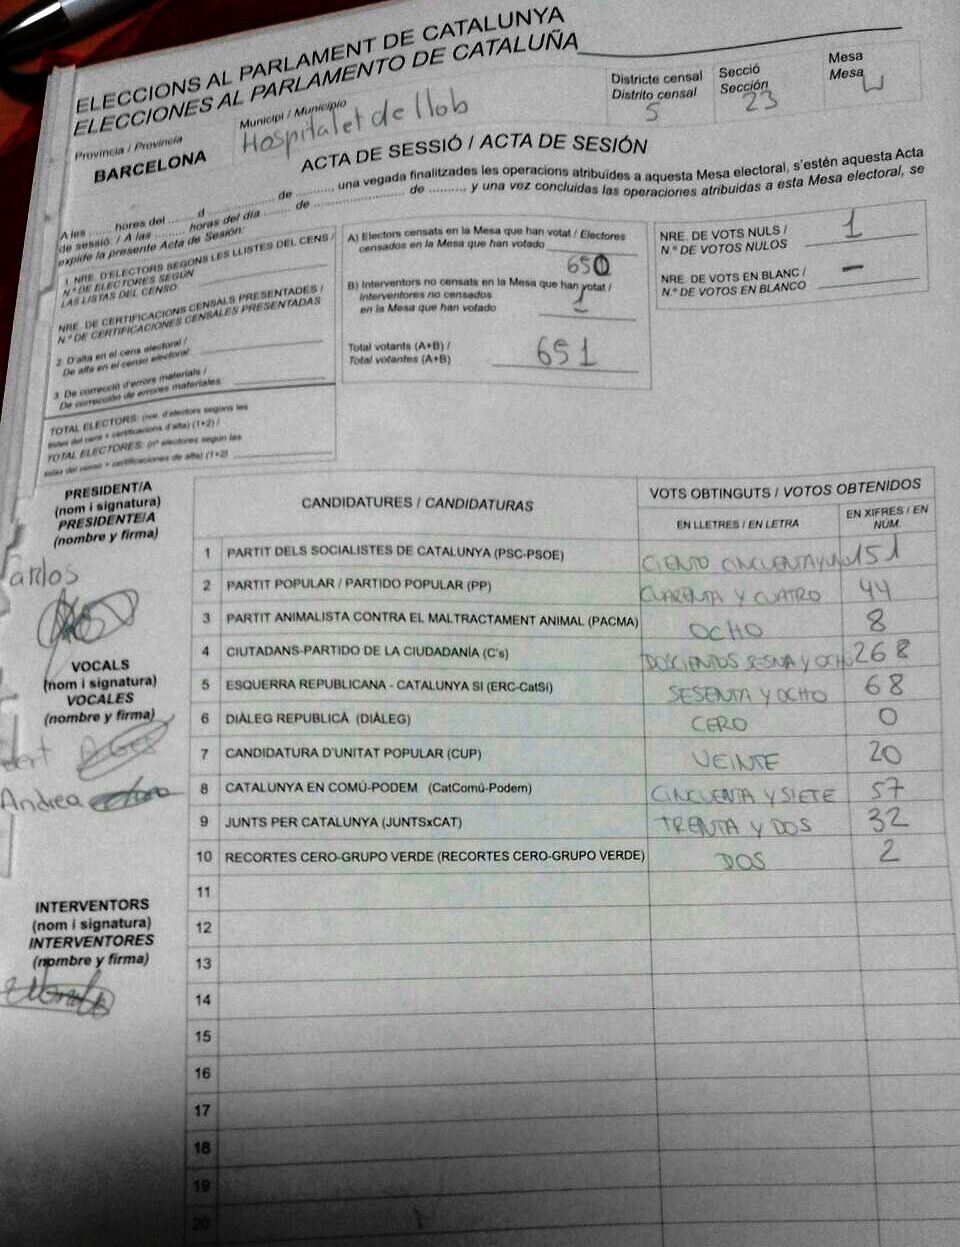 ELECCIONS AL PARLAMENT DE CATALUNYA
ELECCIONES AL PARLAMENTO DE CATALUÑA
Província / Provincia
BARCELONA
Municipi / Municipio
Hospitalet de llob
Districte censal
Distrito censal
5
Secció
Sección
23
Mesa
Mesa
U
ACTA DE SESSIÓ / ACTA DE SESIÓN
A les ........ hores del ........ d ........ de ........, una vegada finalitzades les operacions atribuides a aquesta Mesa electoral, s'estén aquesta Acta
de sessió. / A las ........ horas del día ........ de ........ de ........, y una vez concluidas las operaciones atribuidas a esta Mesa electoral, se
expide la presente Acta de Sesión:
1. NRE. D'ELECTORS SEGONS LES LLISTES DEL CENS /
N.º DE ELECTORES SEGÚN
LAS LISTAS DEL CENSO
NRE. DE CERTIFICACIONS CENSALS PRESENTADES /
N.º DE CERTIFICACIONES CENSALES PRESENTADAS
2. D'alta en el cens electoral /
De alta en el censo electoral
3. De correcció d'errors materials /
De corrección de errores materiales
TOTAL ELECTORS: (nre. d'electors segons les
llistes del cens + certificacions d'alta) (1+2) /
TOTAL ELECTORES: (nº electores según las
listas del censo + certificaciones de alta) (1+2)
A) Electors censats en la Mesa que han votat / Electores
censados en la Mesa que han votado
650
B) Interventors no censats en la Mesa que han votat /
Interventores no censados
en la Mesa que han votado
1
Total votants (A+B) /
Total votantes (A+B)
651
NRE. DE VOTS NULS /
N.º DE VOTOS NULOS
1
NRE. DE VOTS EN BLANC /
N.º DE VOTOS EN BLANCO
—
PRESIDENT/A
(nom i signatura)
PRESIDENTE/A
(nombre y firma)
Carlos
VOCALS
(nom i signatura)
VOCALES
(nombre y firma)
Andrea
INTERVENTORS
(nom i signatura)
INTERVENTORES
(nombre y firma)
CANDIDATURES / CANDIDATURAS
VOTS OBTINGUTS / VOTOS OBTENIDOS
EN LLETRES / EN LETRA
EN XIFRES / EN NÚM.
1 PARTIT DELS SOCIALISTES DE CATALUNYA (PSC-PSOE) CIENTO CINCUENTAYUN 151
2 PARTIT POPULAR / PARTIDO POPULAR (PP) CUARENTA Y CUATRO 44
3 PARTIT ANIMALISTA CONTRA EL MALTRACTAMENT ANIMAL (PACMA) OCHO 8
4 CIUTADANS-PARTIDO DE LA CIUDADANÍA (C's) DOSCIENTOS SESNA Y OCHO 268
5 ESQUERRA REPUBLICANA - CATALUNYA SI (ERC-CatSí) SESENTA Y OCHO 68
6 DIÀLEG REPUBLICÀ (DIÀLEG) CERO 0
7 CANDIDATURA D'UNITAT POPULAR (CUP) VEINTE 20
8 CATALUNYA EN COMÚ-PODEM (CatComú-Podem) CINCUENTA Y SIETE 57
9 JUNTS PER CATALUNYA (JUNTSxCAT) TRENTA Y DOS 32
10 RECORTES CERO-GRUPO VERDE (RECORTES CERO-GRUPO VERDE) DOS 2
11
12
13
14
15
16
17
18
19
20